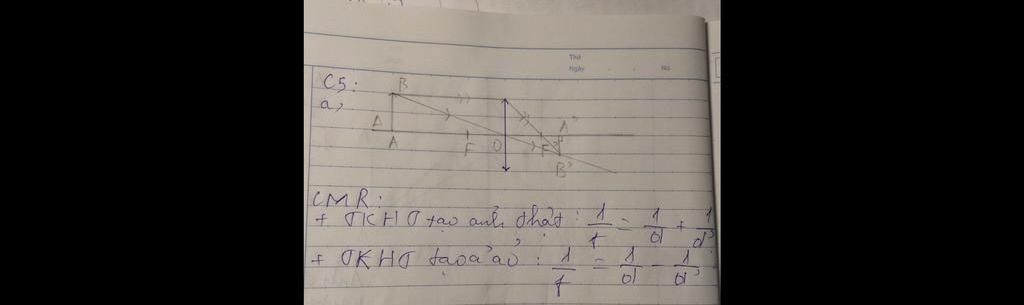 Thứ
Ngày No.
C5:
a,
B
Δ A F O F' A'
B'
CMR:
+ TKHT tạo ảnh thật: 1/f = 1/d + 1/d'
+ TKHT tạo ả ảo: 1/f = 1/d - 1/d'